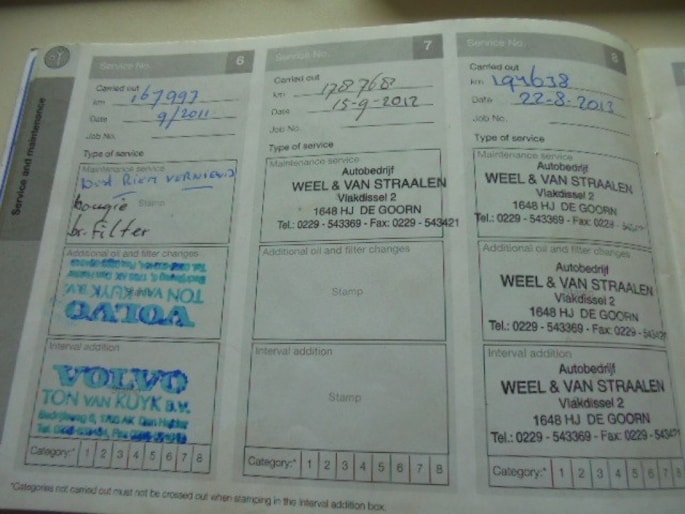 Service and maintenance
Service No. 6
Carried out
km 167997
Date 9/2011
Job No.
Type of service
Maintenance service
RIEM VERNIEUWD
Stamp
bougie
br. Filter
Additional oil and filter changes
VOLVO
TON VAN KUYK B.V.
Interval addition
VOLVO
TON VAN KUYK B.V.
Bedrijfweg 6, 1785 AK Den Helder
Category:* 1 2 3 4 5 6 7 8
Service No. 7
Carried out
km 178768
Date 15-9-2012
Job No.
Type of service
Maintenance service
Autobedrijf
WEEL & VAN STRAALEN
Vlakdissel 2
1648 HJ DE GOORN
Tel.: 0229 - 543369 - Fax: 0229 - 543421
Additional oil and filter changes
Stamp
Interval addition
Stamp
Category:* 1 2 3 4 5 6 7 8
Service No. 8
Carried out
km 194638
Date 22-8-2013
Job No.
Type of service
Maintenance service
Autobedrijf
WEEL & VAN STRAALEN
Vlakdissel 2
1648 HJ DE GOORN
Tel.: 0229 - 543369 - Fax: 0229 - 543421
Additional oil and filter changes
Autobedrijf
WEEL & VAN STRAALEN
Vlakdissel 2
1648 HJ DE GOORN
Tel.: 0229 - 543369 - Fax: 0229 - 543421
Interval addition
Autobedrijf
WEEL & VAN STRAALEN
Vlakdissel 2
1648 HJ DE GOORN
Tel.: 0229 - 543369 - Fax: 0229 - 543421
Category:* 1 2 3 4 5 6 7 8
*Categories not carried out must not be crossed out when stamping in the interval addition box.